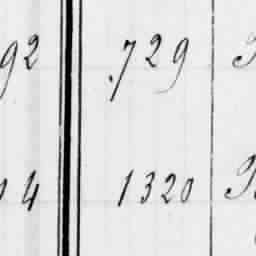 92 729
4 1320